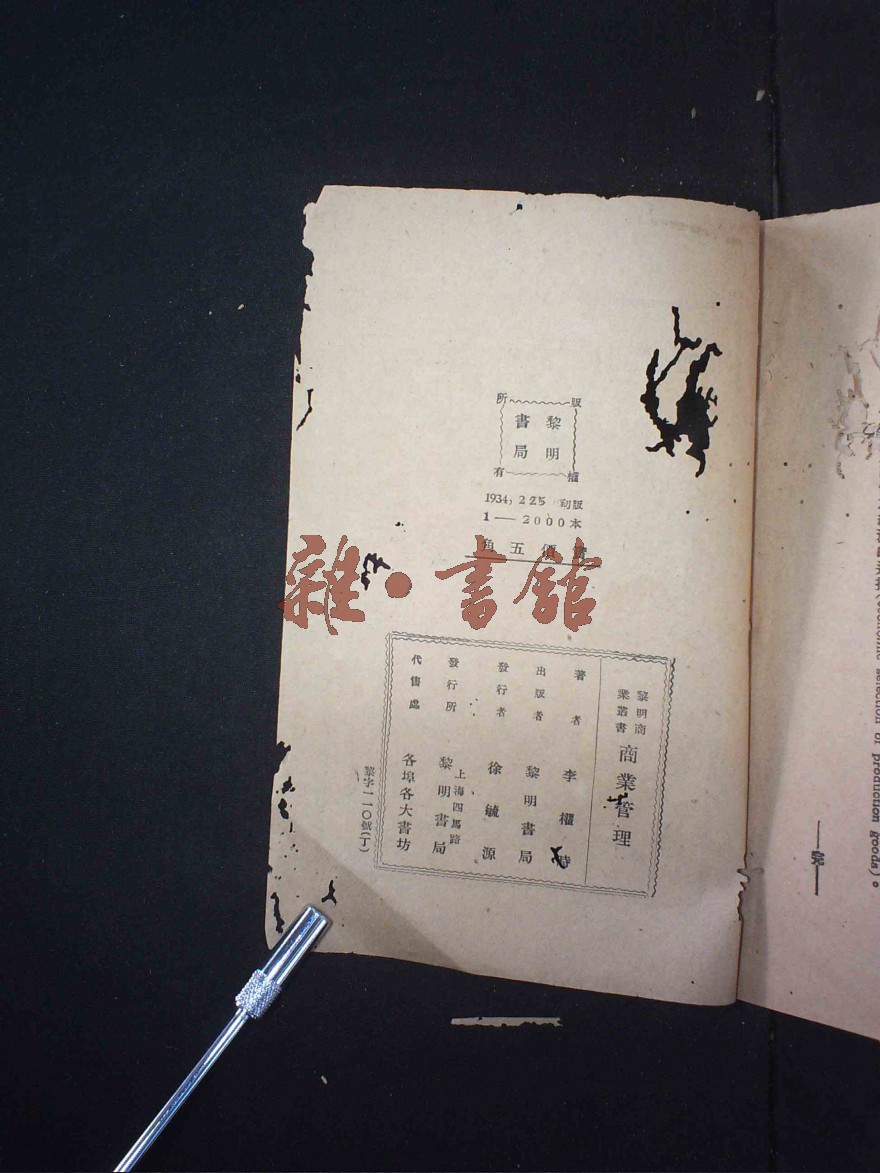 版權所有
黎明
書局
1934, 2 25 初版
1 — 2000本
實價五角
雜·書館
黎明商業叢書 商業管理
著者 李權時
出版者 黎明書局
發行者 徐毓源
發行所 上海四馬路 黎明書局
代售處 各埠各大書坊
黎字一一〇號(丁)
(economic selection of production goods)。
—完—